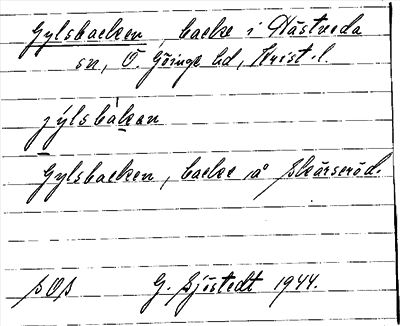 Gylsbacken, backe i Hästveda
sn, Ö. Göinge hd, Krist. l.
jýlsbàkan
Gylsbacken, backe å Skärsröd.
SOS G. Sjöstedt 1944.